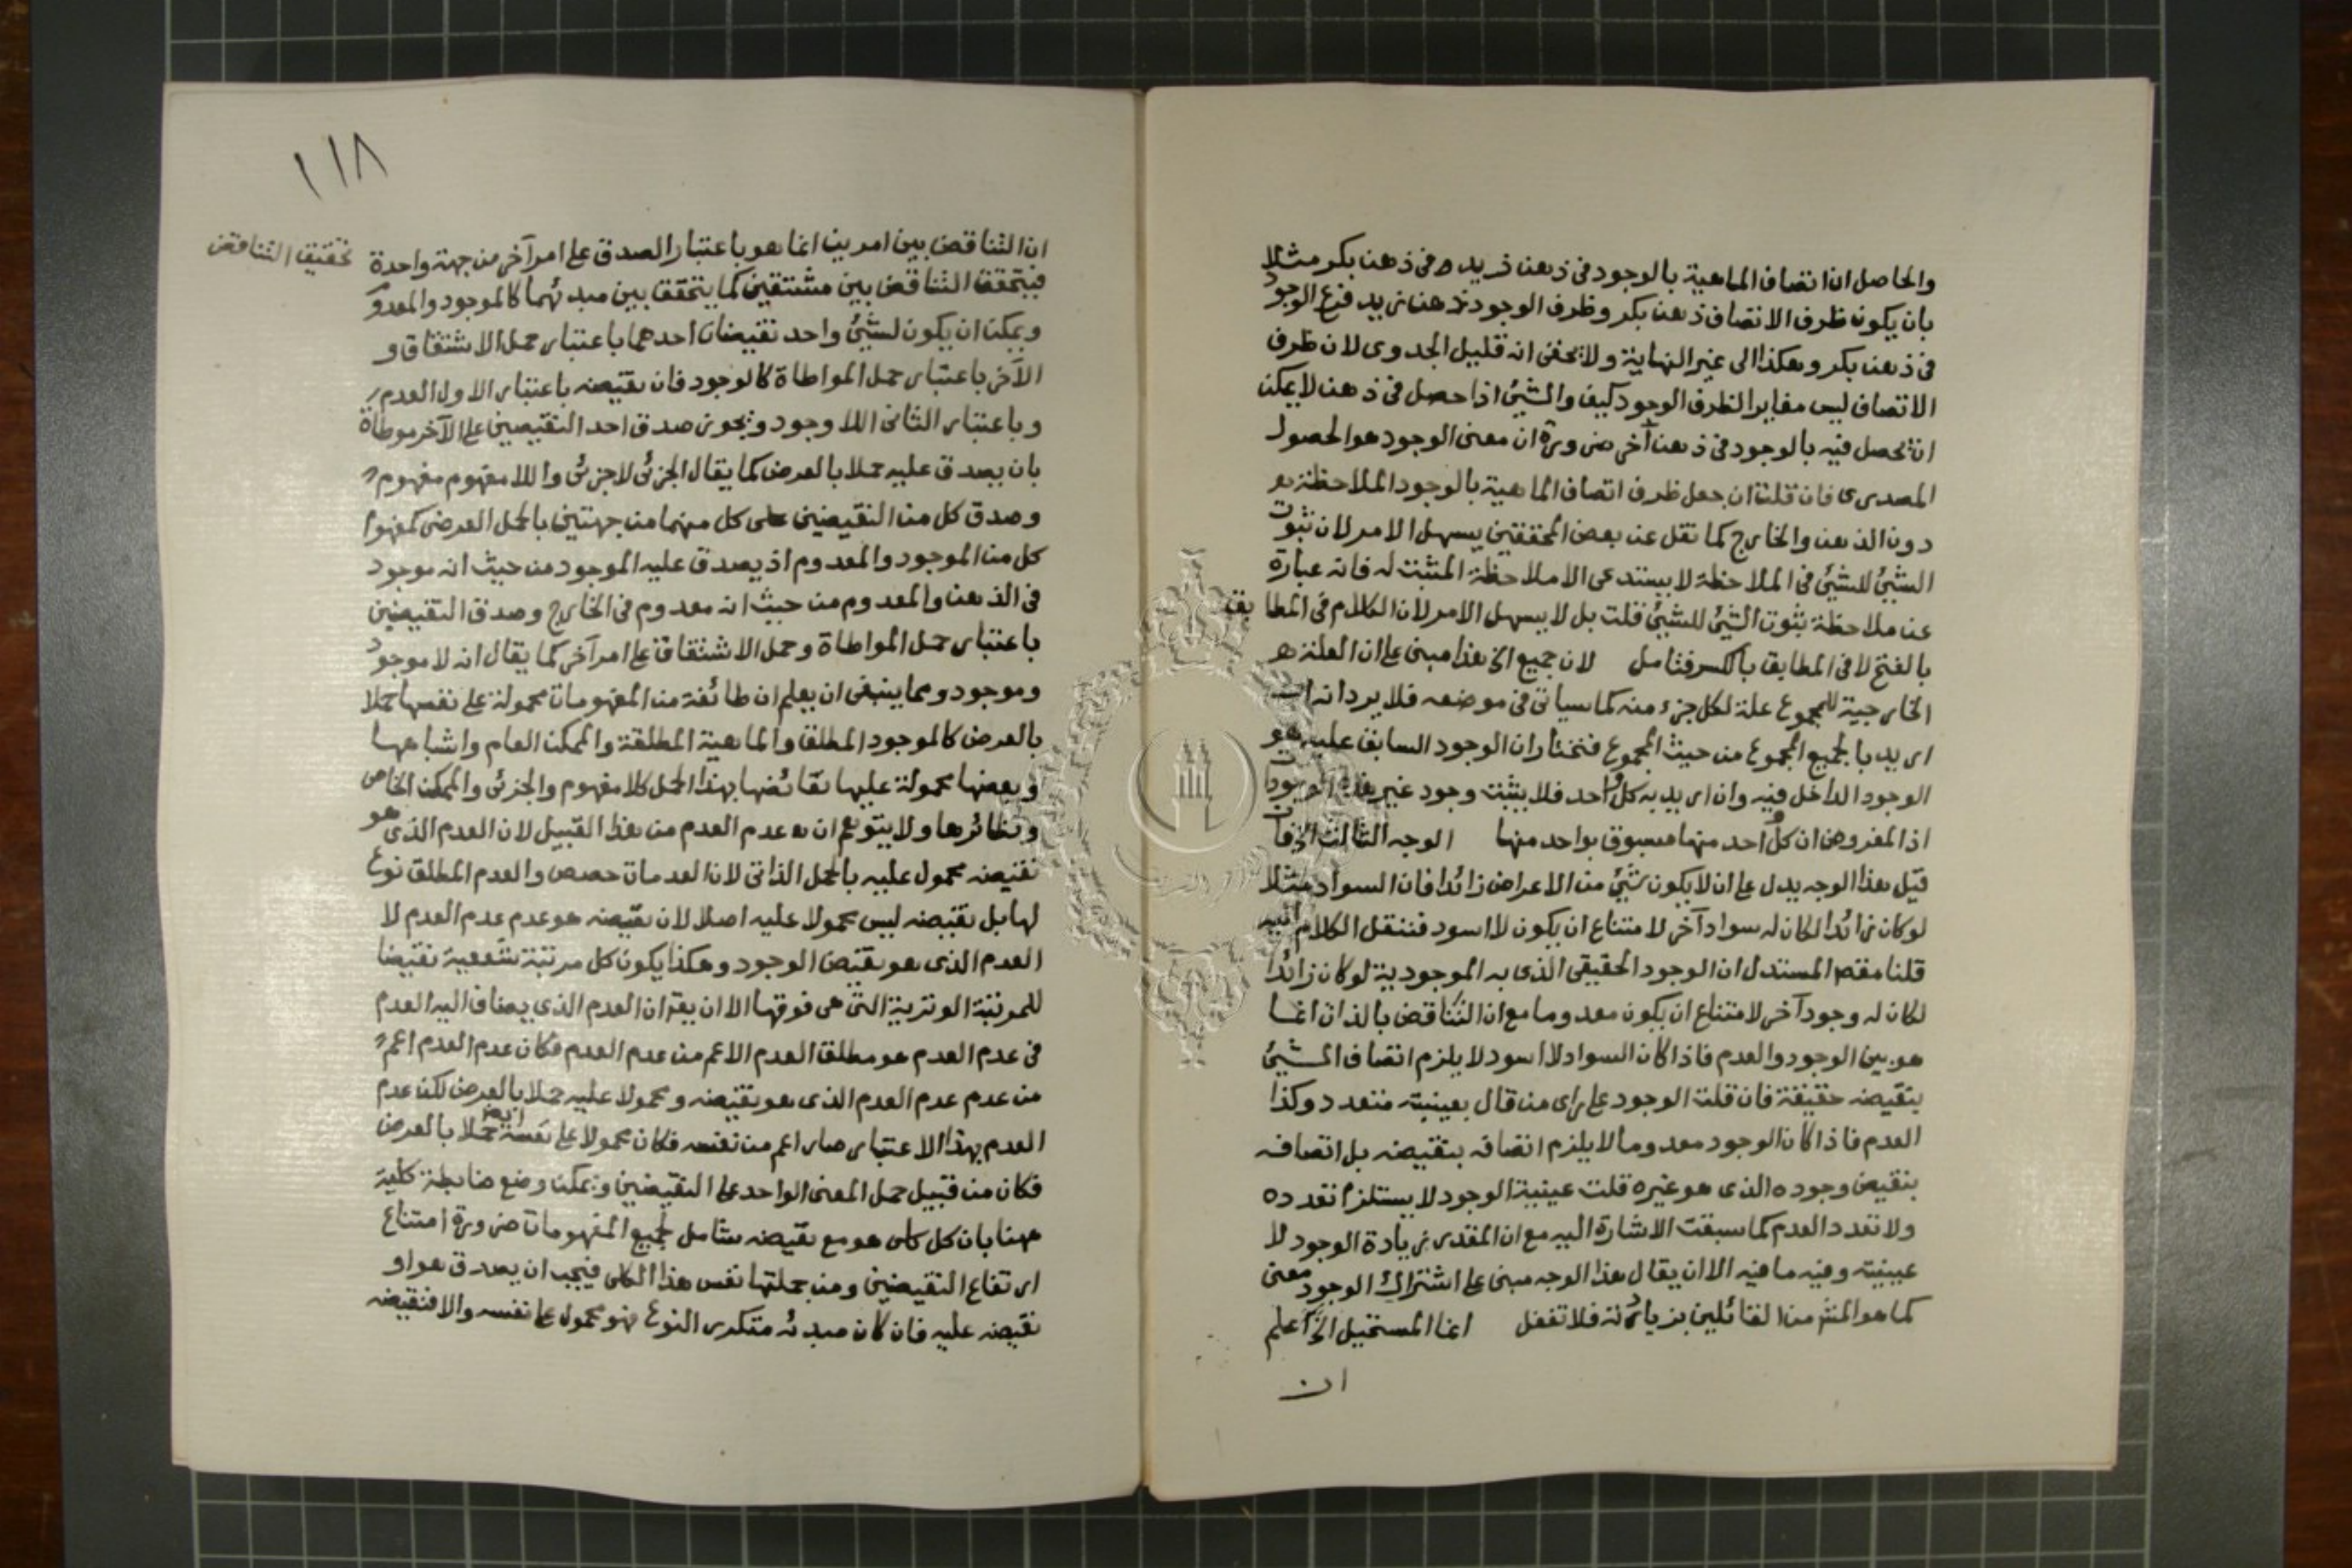 والحاصل ان اتصاف الماهية بالوجود في ذهن زيد وفي ذهن بكر مثلا
بان يكون ظرف الاتصاف ذهن بكر وظرف الوجود ذهن زيد فرع الوجود
في ذهن بكر وهكذا الى غير النهاية ولا يخفى انه قليل الجدوى لان ظرف
الاتصاف ليس مغايرا لظرف الوجود كيف والشئ اذا حصل في ذهن لا يمكن
ان يحصل فيه بالوجود في ذهن آخر ضرورة ان معنى الوجود هو الحصول
المصدرى فان قلت ان جعل ظرف اتصاف الماهية بالوجود الملاحظة هو
دون الذهن والخارج كما نقل عن بعض المحققين يسهل الامر لان ثبوت
الشئ للشئ في الملاحظة لا يستدعى الا ملاحظة المثبت له فانه عبارة
عن ملاحظة ثبوت الشئ للشئ قلت بل لا يسهل الامر لان الكلام في المطابق
بالفتح لا في المطابق بالكسر فتامل لان جميع الخ هذا مبنى على ان العلة
الخارجية للمجموع علة لكل جزء منه كما سياتى في موضعه فلا يرد انه ان
اريد بالجميع المجموع من حيث المجموع فنختار ان الوجود السابق عليه هو
الوجود الداخل فيه وان اريد به كل واحد فلا يثبت وجود غير هذه الوجودات
اذ المفروض ان كل واحد منها مسبوق بواحد منها الوجه الثالث الخ فان
قيل هذا الوجه يدل على ان لا يكون شئ من الاعراض زائدا فان السواد مثلا
لو كان زائدا لكان له سواد آخر لامتناع ان يكون لا اسود فننقل الكلام اليه
قلنا مقصد المستدل ان الوجود الحقيقى الذى به الموجودية لو كان زائدا
لكان له وجود آخر لامتناع ان يكون معدوما مع ان التناقض بالذات انما
هو بين الوجود والعدم فاذا كان السواد لا اسود لا يلزم اتصاف الشئ
بنقيضه حقيقة فان قلت الوجود على راى من قال بعينيته متعدد وكذا
العدم فاذا كان الوجود معدوما لا يلزم اتصافه بنقيضه بل اتصافه
بنقيض وجوده الذى هو غيره قلت عينية الوجود لا يستلزم تعدده
ولا تعدد العدم كما سبقت الاشارة اليه مع ان المقدر زيادة الوجود لا
عينيته وفيه ما فيه الا ان يقال هذا الوجه مبنى على اشتراك الوجود معنى
كما هو المش من القائلين بزيادته فلا تغفل انما المستحيل الخ اعلم
ان
١١٨
تحقيق التناقض
ان التناقض بين امرين انما هو باعتبار الصدق على امر آخر من جهة واحدة
فيتحقق التناقض بين مشتقين كما يتحقق بين مبدئهما كالموجود والمعدوم
ويمكن ان يكون لشئ واحد نقيضان احدهما باعتبار حمل الاشتقاق و
الآخر باعتبار حمل المواطاة كالوجود فان نقيضه باعتبار الاول العدم
وباعتبار الثانى اللا وجود ويجوز صدق احد النقيضين على الآخر موطاة
بان يصدق عليه حملا بالعرض كما يقال الجزئى لا جزئى واللا مفهوم مفهوم
وصدق كل من النقيضين على كل منهما من جهتين بالحمل العرضى كمفهوم
كل من الموجود والمعدوم اذ يصدق عليه الموجود من حيث انه موجود
في الذهن والمعدوم من حيث انه معدوم في الخارج وصدق النقيضين
باعتبار حمل المواطاة وحمل الاشتقاق على امر آخر كما يقال انه لا موجود
وموجود ومما ينبغى ان يعلم ان طائفة من المفهومات محمولة على نفسها حملا
بالعرض كالموجود المطلق والماهية المطلقة والممكن العام واشباهها
وبعضها محمولة عليها نقائضها بهذا الحمل كلا مفهوم والجزئى والممكن الخاص
ونظائرها ولا يتوهم ان عدم العدم من هذا القبيل لان العدم الذى هو
نقيضه محمول عليه بالحمل الذاتى لان العدمات حصص والعدم المطلق نوع
لها بل نقيضه ليس محمولا عليه اصلا لان نقيضه هو عدم عدم العدم لا
العدم الذى هو نقيض الوجود وهكذا يكون كل مرتبة شفعية نقيضا
للمرتبة الوترية التى هى فوقها الا ان يقر ان العدم الذى يضاف اليه العدم
في عدم العدم هو مطلق العدم الاعم من عدم العدم فكان عدم العدم اعم
من عدم عدم العدم الذى هو نقيضه ومحمولا عليه حملا بالعرض لكن عدم
العدم بهذا الاعتبار صار اعم من نفسه فكان محمولا على نفسه ايض حملا بالعرض
فكان من قبيل حمل المعنى الواحد على النقيضين ويمكن وضع ضابطة كلية
ههنا بان كل كلى هو مع نقيضه شامل لجميع المفهومات ضرورة امتناع
ارتفاع النقيضين ومن جملتها نفس هذا الكلى فيجب ان يصدق هو او
نقيضه عليه فان كان مبدئه متكرر النوع فهو محمول على نفسه والا فنقيضه